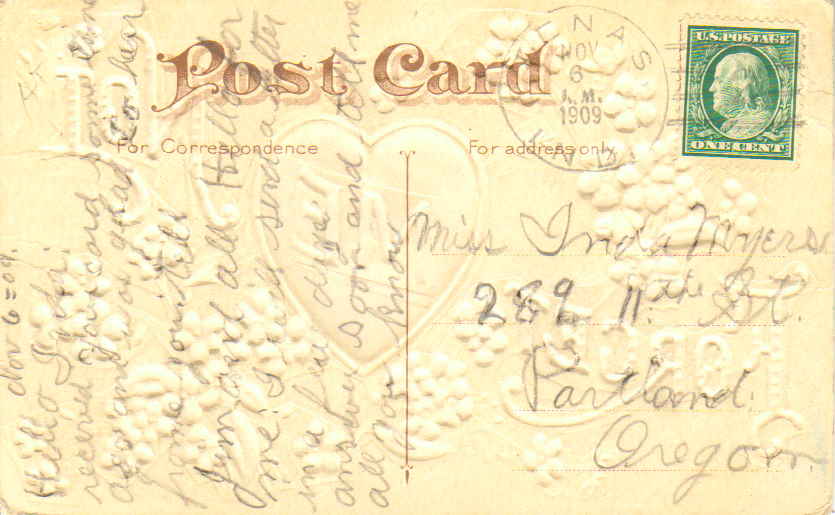 Post Card
For Correspondence
For address only
NAS
NOV
6
A.M.
1909
U.S. POSTAGE
ONE CENT
Nov 6=09.
Hello Inda:
received your card some time
ago and was glad to hear
from you. tell
Jim and all Hello for
me. I will send a letter
in a few days.
answer soon and tell me
all you know
Miss Inda Myers
289 11th St.
Portland
Oregon.